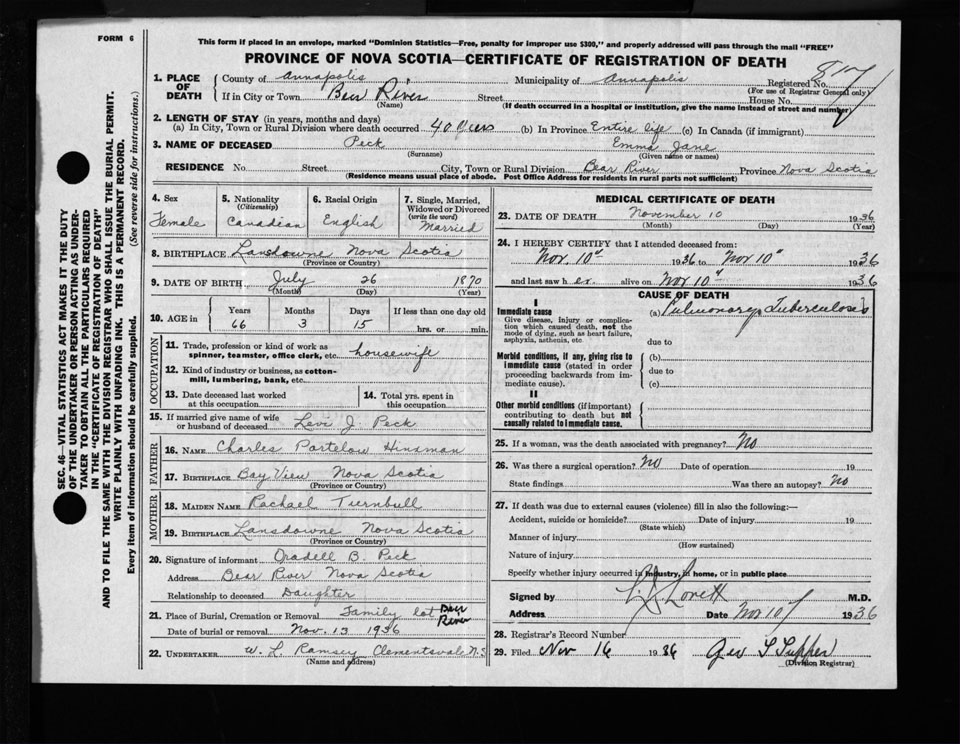 FORM 6
This form if placed in an envelope, marked "Dominion Statistics—Free, penalty for improper use $300," and properly addressed will pass through the mail "FREE"
PROVINCE OF NOVA SCOTIA—CERTIFICATE OF REGISTRATION OF DEATH
1. PLACE OF DEATH
County of Annapolis Municipality of Annapolis Registered No. 817
(For use of Registrar General only)
If in City or Town Bear River Street House No.
(Name) (If death occurred in a hospital or institution, give the name instead of street and number)
2. LENGTH OF STAY (in years, months and days)
(a) In City, Town or Rural Division where death occurred 40 Years (b) In Province Entire life (c) In Canada (if immigrant)
3. NAME OF DECEASED Peck Emma Jane
(Surname) (Given name or names)
RESIDENCE No. Street City, Town or Rural Division Bear River Province Nova Scotia
(Residence means usual place of abode. Post Office Address for residents in rural parts not sufficient)
4. Sex
Female
5. Nationality
(Citizenship)
Canadian
6. Racial Origin
English
7. Single, Married,
Widowed or Divorced
(write the word)
Married
8. BIRTHPLACE Lansdowne Nova Scotia
(Province or Country)
9. DATE OF BIRTH July 26 1870
(Month) (Day) (Year)
10. AGE in Years Months Days If less than one day old
66 3 15 hrs. or min.
OCCUPATION
11. Trade, profession or kind of work as
spinner, teamster, office clerk, etc. housewife
12. Kind of industry or business, as cotton-
mill, lumbering, bank, etc.
13. Date deceased last worked
at this occupation
14. Total yrs. spent in
this occupation
15. If married give name of wife
or husband of deceased Levi J. Peck
FATHER
16. NAME Charles Portelow Hinxman
17. BIRTHPLACE Bay View Nova Scotia
(Province or Country)
MOTHER
18. MAIDEN NAME Rachael Turnbull
19. BIRTHPLACE Lansdowne Nova Scotia
(Province or Country)
20. Signature of informant Oradell B. Peck
Address Bear River Nova Scotia
Relationship to deceased Daughter
21. Place of Burial, Cremation or Removal Family lot Bear River
Date of burial or removal Nov. 13 1936
22. UNDERTAKER W. L. Ramsey Clementsvale N.S
(Name and address)
MEDICAL CERTIFICATE OF DEATH
23. DATE OF DEATH November 10 1936
(Month) (Day) (Year)
24. I HEREBY CERTIFY that I attended deceased from:
Nov 10" 1936 to Nov 10" 1936
and last saw her alive on Nov 10" 1936
CAUSE OF DEATH
I
Immediate cause
Give disease, injury or complica-
tion which caused death, not the
mode of dying, such as heart failure,
asphyxia, asthenia, etc.
(a) Pulmonary Tuberculosis
due to
Morbid conditions, if any, giving rise to
immediate cause (stated in order
proceeding backwards from im-
mediate cause).
(b)
due to
(c)
II
Other morbid conditions (if important)
contributing to death but not
causally related to immediate cause.
25. If a woman, was the death associated with pregnancy? No
26. Was there a surgical operation? No Date of operation 19
State findings Was there an autopsy? No
27. If death was due to external causes (violence) fill in also the following:—
Accident, suicide or homicide? Date of injury 19
(State which)
Manner of injury
(How sustained)
Nature of injury
Specify whether injury occurred in industry, in home, or in public place
Signed by L J Lovett M.D.
Address Date Nov 10 1936
28. Registrar's Record Number
29. Filed Nov 16 1936 Geo S Tupper
(Division Registrar)
SEC. 46—VITAL STATISTICS ACT MAKES IT THE DUTY
OF THE UNDERTAKER OR PERSON ACTING AS UNDER-
TAKER TO OBTAIN ALL THE PARTICULARS REQUIRED
IN THE "CERTIFICATE OF REGISTRATION OF DEATH"
AND TO FILE THE SAME WITH THE DIVISION REGISTRAR WHO SHALL ISSUE THE BURIAL PERMIT.
WRITE PLAINLY WITH UNFADING INK. THIS IS A PERMANENT RECORD.
Every item of information should be carefully supplied. (See reverse side for instructions.)